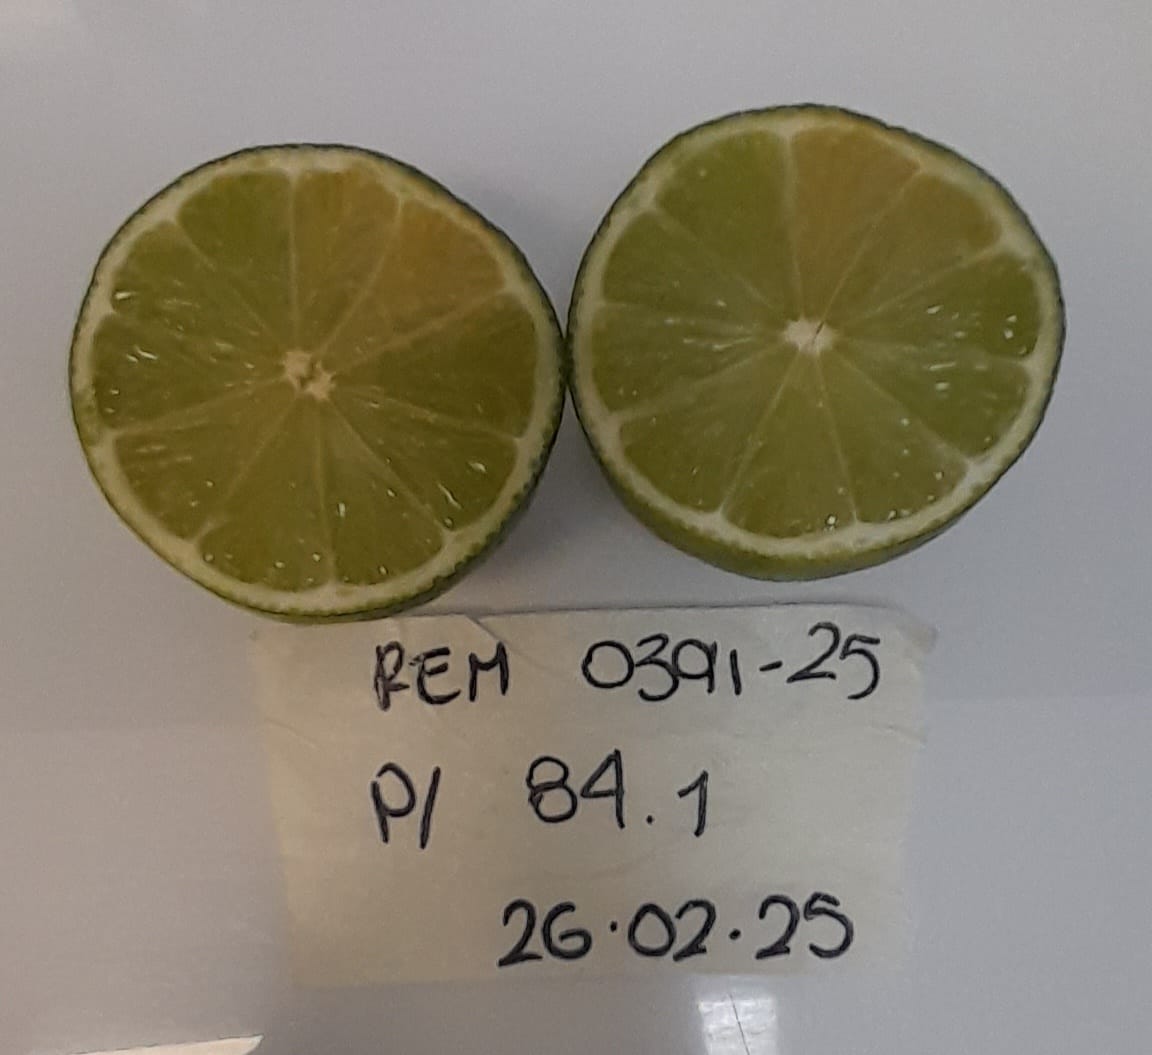 REM 0391-25
P/ 84.1
26.02.25